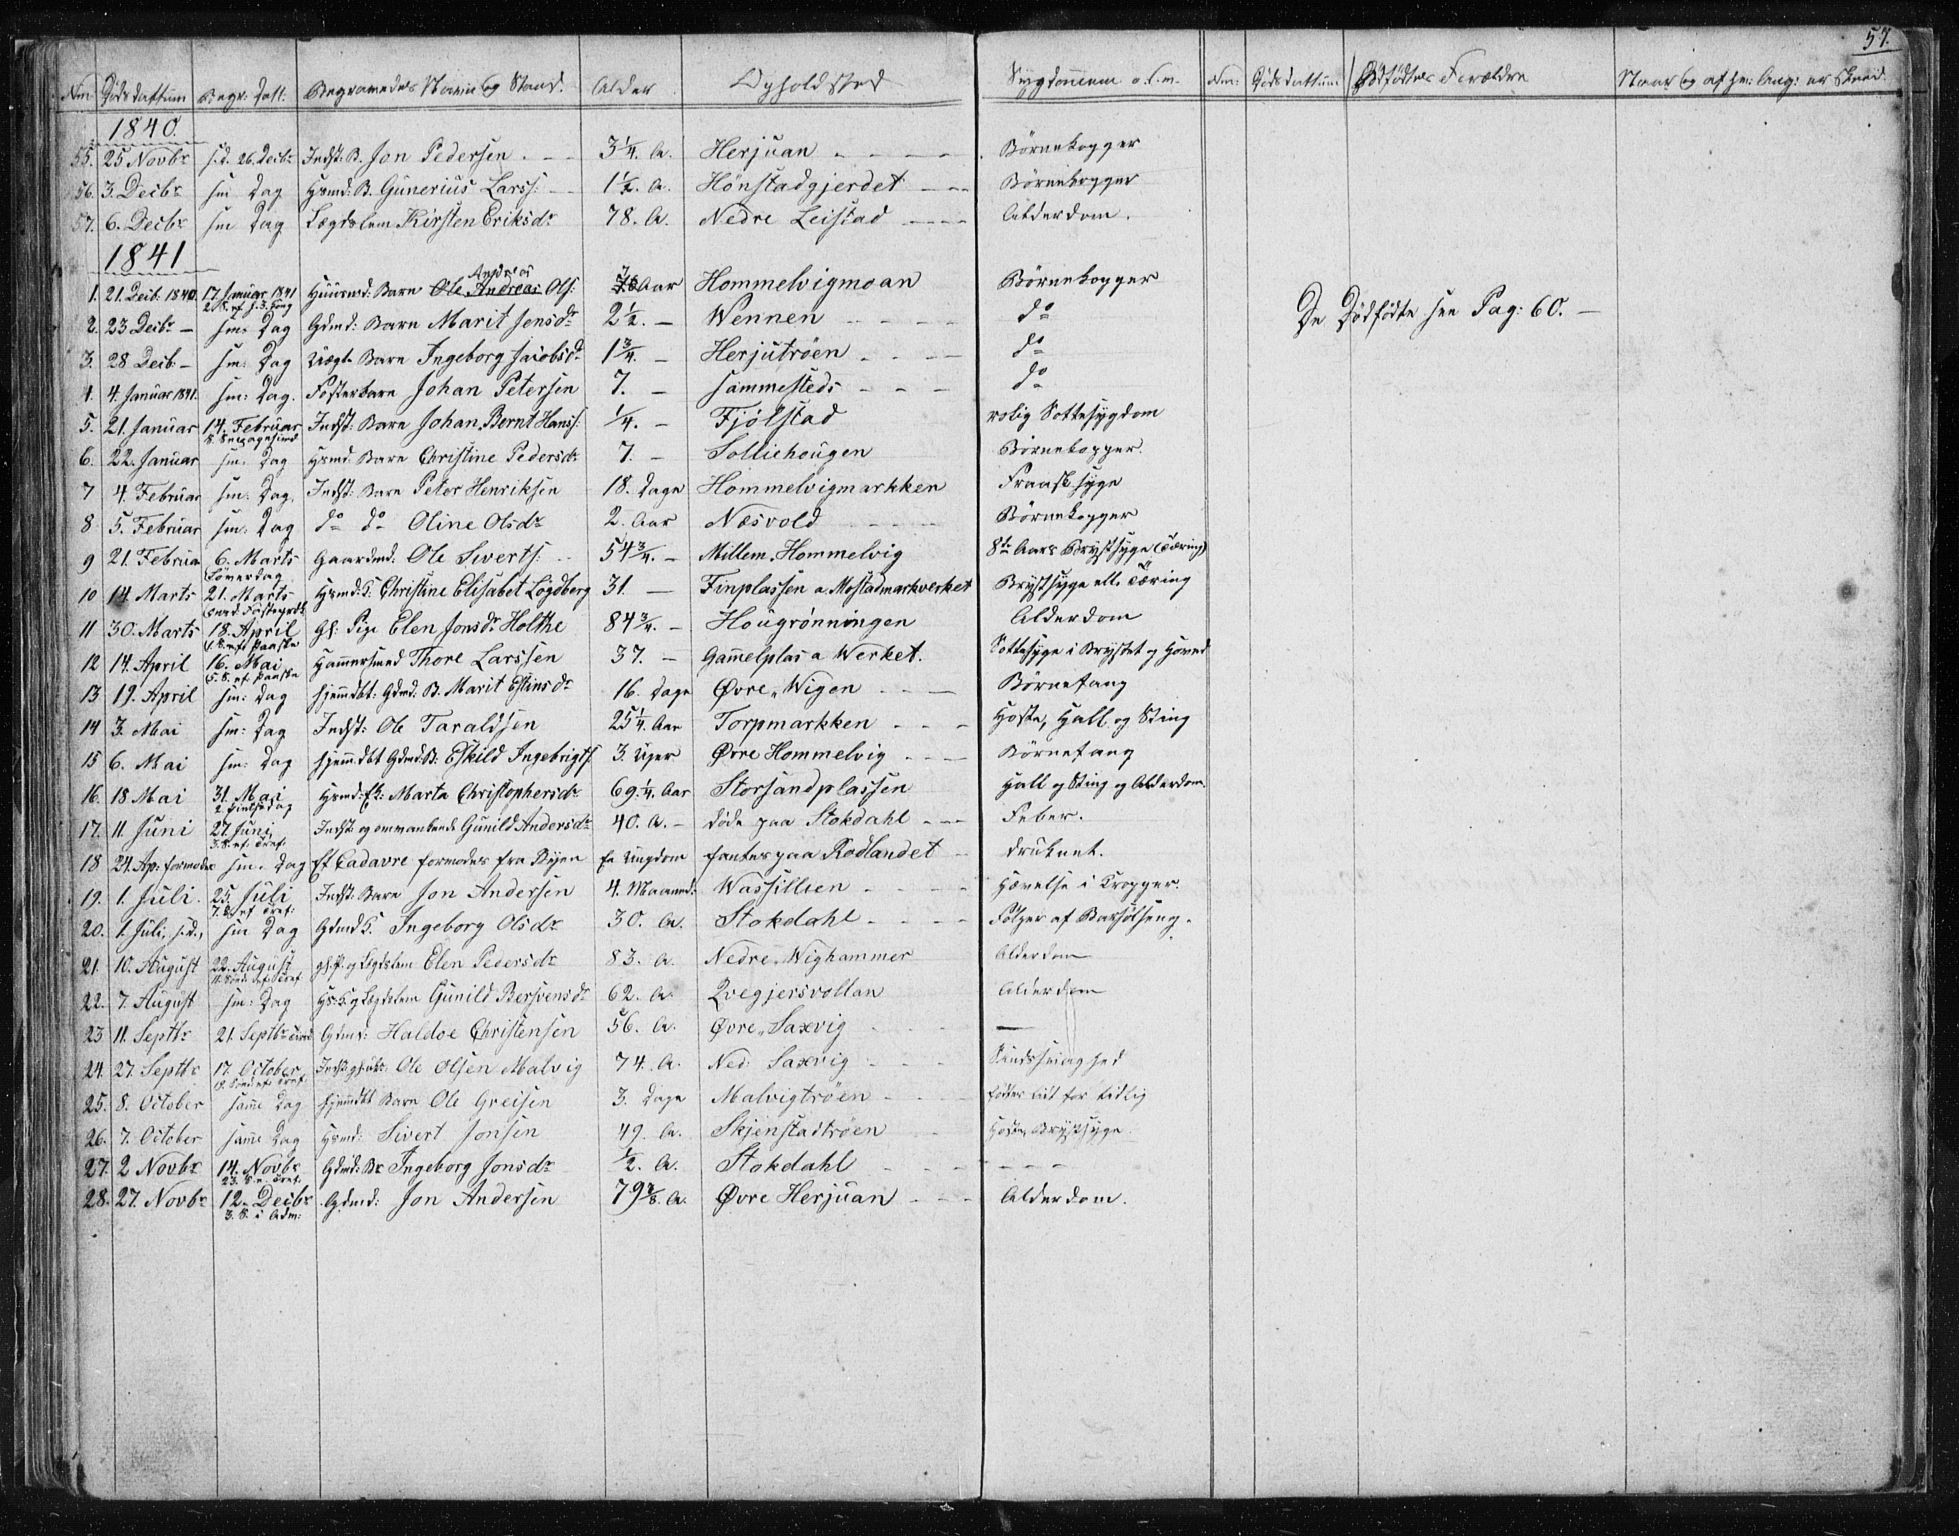 57.
Nm Dødsdattum Begr: Datt: Begravedes Navn og Stand. Alder Opholdsted Sygdommen o.s.v. Nm: Dødsdattum: Dødfødtes Forældre Naar og af hv: Ang: er skeed
1840.
55. 25 Novbr s.d. 26. Decbr Indst: B. Jon Pedersen 3 1/4. A. Herjuan Børnekopper
56. 3. Decbr sm Dag Hsmd: B. Gunerius Larss: 1 1/2. A. Hönstadgjerdet Børnekopper
57. 6. Decbr sm Dag Lægdslem Kirsten Eriksdr 78. A. Nedre Leistad Alderdom.
1841
1. 21. Decb. 1840. 17 Januar 1841 Huusmd: Barn Ole Andreas Andreas Ols: Aar Hommelvigmoan Børnekopper
De Dødfødte see Pag: 60.
2. 23 Decbr sm: Dag Gdmd: Barn Marit Jensdr 2 1/2. Wennen do
3. 28 Decb. sm: Dag Uægte Barn Ingeborg Jacobsdr 1 3/4. Herjutröen do
4. 4. Januar 1841. sm: Dag. Fosterbarn Johan Petersen 7. sammesteds do
5. 21. Januar 14. Februar Indst: Barn Johan Bernt Hanss: 1/4. Fjölstad rolig Sottesygdom
S. Sexagesima
6. 22. Januar sm: Dag Hsmd: Barn Christine Pedersdr 7. Solliehougen Börnekopper.
7 4. Februar sm: Dag. Indst: Barn Peter Henriksen 18. Dage Hommelvigmarkken Fraasksyge
8. 5. Februar sm: Dag do do Oline Olsdr 2. Aar Næsvold Börnekopper
9 21. Februar 6. Marts Gaardmd: Ole Siverts: 54 3/4. Millem Hommelvig 8te Aars Brystsyge (Tæring)
Löverdag
10 14 Marts 21. Marts Hsmd: K. Christine Elisabet Lögdberg 31. Finplassen a Mostadmarkverket Brystsyge ell. Tæring
11 30. Marts 18. April Gl: Pige Elen Jonsdr Holthe 84 3/4. Hougrönningen Alderdom
1. S. eft Paaske
12 14. April 16. Mai Hammersmed Thore Larssen 37. Gammelplas a Werket. Sottesyge i Brystet og Hoved
5. S. ef. Paaske
13 19. April sm: Dag hjemdbt: Gdmd: B. Marit Estinsdr 16. Dage Øvre Wigen Børnetang
14 3. Mai sm: Dag Indst: Ole Taraldsen 25 1/4. Aar Torpmarkken Hoste, Hall og Sting
15 6. Mai sm: Dag hjem.dbt Gdmd: B: Eskild Ingebrigts: 3. Uger Øvre Hommelvig Børnetang
16. 18 Mai 31. Mai Hsmd: Marta Christophersdr 69 1/4. Aar Storsandplassen Hall og Sting og Alderdom.
2 Pintsedag
17. 11. Juni 27. Juni Indst: og omvankende Gunild Andersdr 40. A. døde paa Stokdahl Feber.
3. S. ef. Tref.
18 24. Ap. formodes sm. Dag Et Cadavre formodes fra Byen en Ungdom fantes paa Rodlandet druknet.
19. 1. Juli. 25. Juli Indst: Barn Jon Andersen 4. Maaned: Wassillien Hævelse i Kroppen.
7. S. ef Tref:
20. 1. Juli, s.d., sm Dag Gdmd K. Ingeborg Olsdr 30. A. Stokdahl Følger af Barselseng.
21. 10. August 22. August Lægdslem Elen Pedersdr 83. A. Nedre Wighammer Alderdom
11. Sönd: ef: Tref.
22. 7. August sm: Dag Lægdslem Gunild Bersvensdr 62. A. Qvegjersvollan Alderdom
23. 11. Septbr 21. Septbr Gdmd: Haldoe Christensen 56. A. Øvre Saxvig
24. 27. Septbr 17. October Ole Olsen Malvig 74. A. Ned: Saxvig Sindssvaghed
19. Sönd. ef: Tref.
25. 8. October samme Dag hjemdbt Barn Ole Greisen 3. Dage Malvigtröen födtes lidt for tidlig
26. 7. October samme Dag Hsmd: Sivert Jonsen 49. A. Skjenstadtröen Hoste, Brystsyge.
27. 2 Novbr 14. Novbr Gdmd: B: Ingeborg Jonsdr 1/2. A. Stokdahl
23. S. e. Tref.
28. 27. Novbr 12. Decbr Gdmd: Jon Andersen 79 3/8. A. Øvre Herjuan Alderdom.
3. S. i Adv: